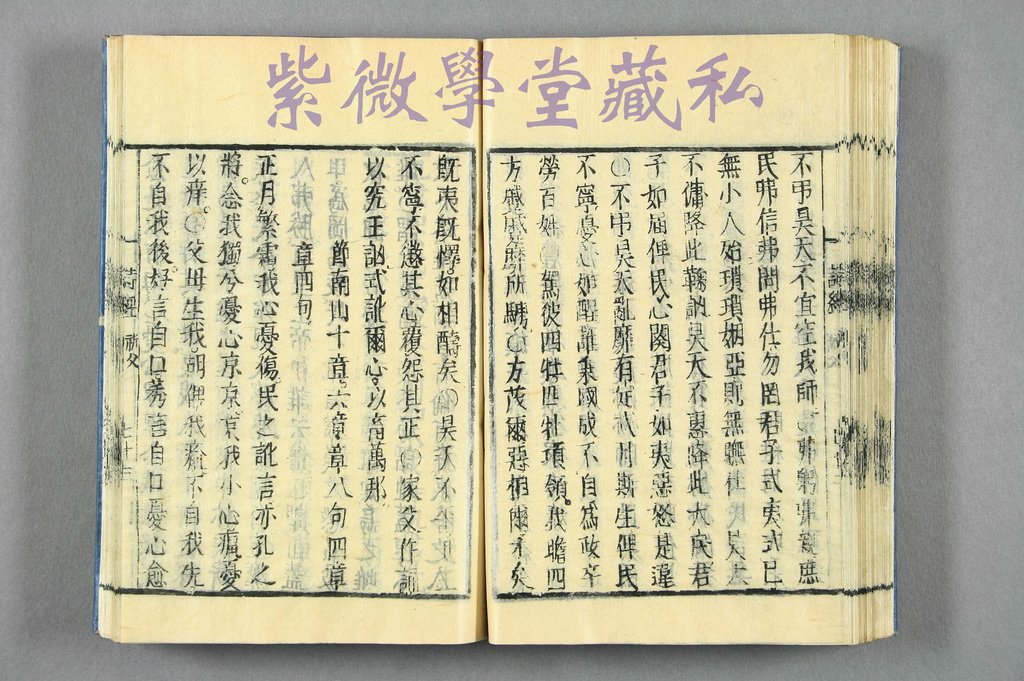 私藏堂學微紫
不弔昊天不宜空我師○弗躬弗親庶
民弗信弗問弗仕勿罔君子式夷式已
無小人殆瑣瑣姻亞則無膴仕○昊天
不傭降此鞠訩昊天不惠降此大戾君
子如届俾民心闋君子如夷惡怒是違
○不弔昊天亂靡有定式月斯生俾民
不寧憂心如酲誰秉國成不自爲政卒
勞百姓○駕彼四牡四牡項領我瞻四
方蹙蹙靡所騁○方茂爾惡相爾矛矣
旣夷旣懌如相醻矣○昊天不平我王
不寧不懲其心覆怨其正○家父作誦
以究王訩式訛爾心以畜萬邦
節南山十章六章章八句四章
章四句
正月繁霜我心憂傷民之訛言亦孔之
將念我獨兮憂心京京哀我小心癙憂
以痒○父母生我胡俾我瘉不自我先
不自我後好言自口莠言自口憂心愈
詩經
詩經
祈父
七十三